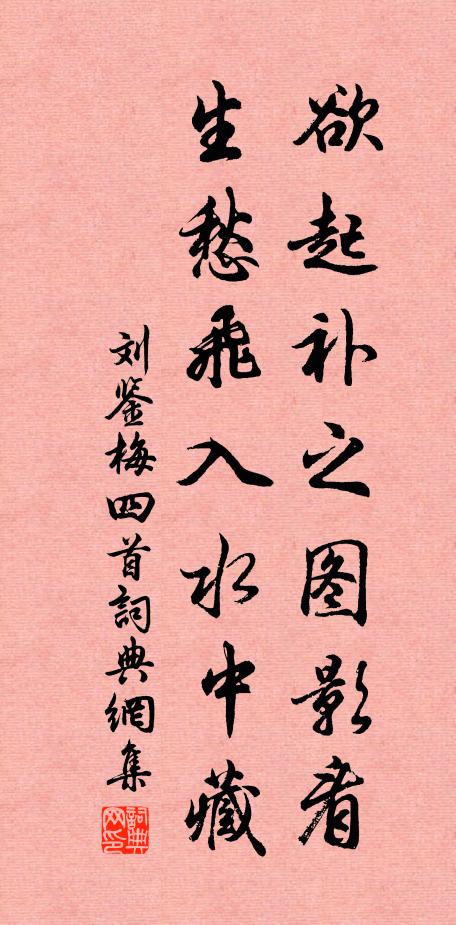 欲起补之图影看
生愁飞入水中藏
刘鉴梅四首詞典網集
詞典网印